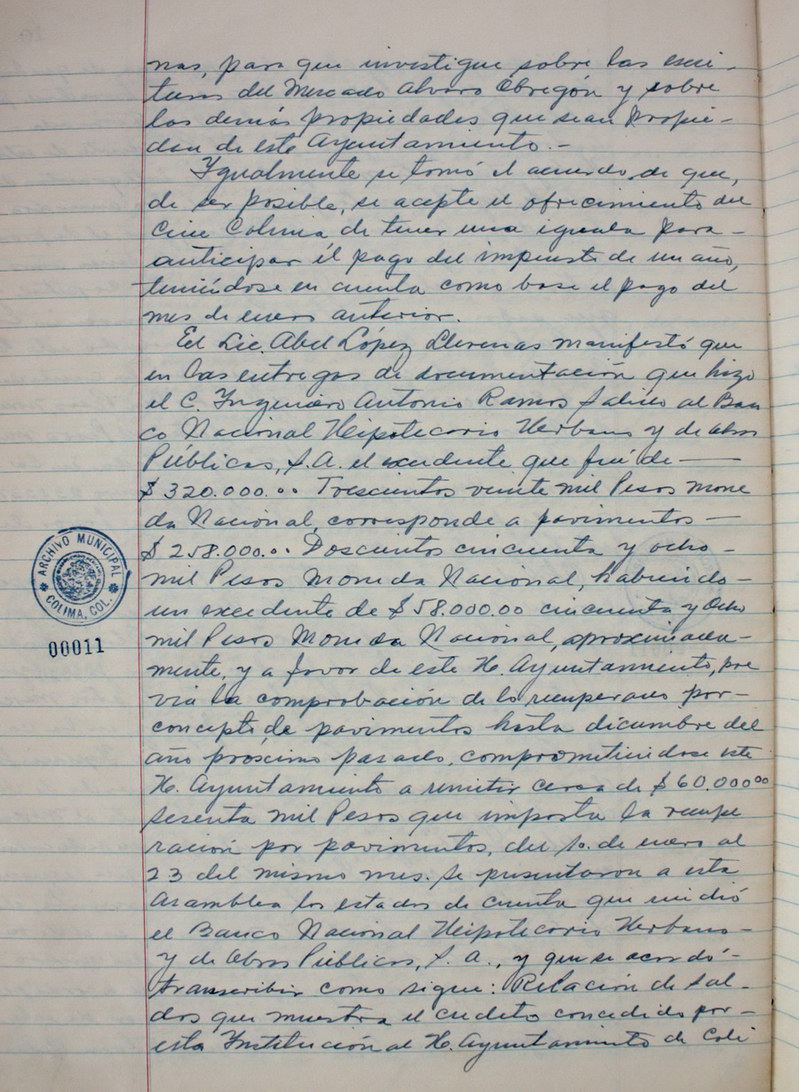 nas, para que investigue sobre las escri-
turas del Mercado Alvaro Obregón y sobre
las demás propiedades que sean propie-
dad de este Ayuntamiento.-
Igualmente se tomó el acuerdo de que,
de ser posible, se acepte el ofrecimiento del
Cine Colima de tener una iguala para-
anticipar él pago del impuesto de un año,
teniéndose en cuenta como base el pago del
mes de enero anterior.
El Lic. Abel López Llerenas manifestó que
en las entregas de documentación que hizo
el C. Ingeniero Antonio Ramos Salido al Ban
co Nacional Hipotecario Urbano y de Obras
Públicas, S.A. el excedente que fué de —
$ 320.000.00 Trescientos veinte mil Pesos Mone
da Nacional, corresponde a pavimentos —
$ 258.000.00 Doscientos cincuenta y ocho-
mil Pesos Moneda Nacional, habiendo-
un excedente de $ 58.000.00 cincuenta y Ocho
mil Pesos Moneda Nacional, aproximada-
mente, y a favor de este H. Ayuntamiento, pre
via la comprobación de lo recuperado por-
concepto de pavimentos hasta diciembre del
año próximo pasado, comprometiéndose este
H. Ayuntamiento a remitir cerca de $ 60.000.00
sesenta mil Pesos que importa la recupe
ración por pavimentos, del 1o. de enero al
23 del mismo mes. Se presentaron a esta
Asamblea los estados de cuenta que rindió
el Banco Nacional Hipotecario Urbano-
y de Obras Públicas, S. A., y que se acordó-
transcribir como sigue: Relación de Sal-
dos que muestra el credito concedido por-
esta Institución al H. Ayuntamiento de Coli
ARCHIVO MUNICIPAL
COLIMA, COL.
00011